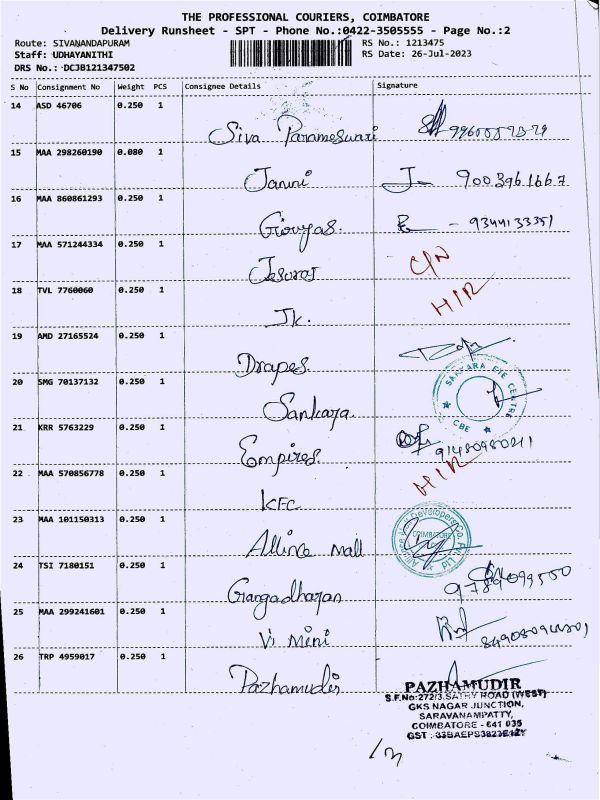 THE PROFESSIONAL COURIERS, COIMBATORE
Delivery Runsheet - SPT - Phone No.:0422-3505555 - Page No.:2
Route: SIVANANDAPURAM
RS No.: 1213475
Staff: UDHAYANITHI
RS Date: 26-Jul-2023
DRS No.: DCJB121347502
S No Consignment No Weight PCS Consignee Details Signature
14 ASD 46706 0.250 1
Siva Parameswari
15 MAA 298260190 0.080 1
Janani 9003961667
16 MAA 860861293 0.250 1
Giovyas. - 9344133351
17 MAA 571244334 0.250 1
Jesuraj C/N
18 TVL 7760060 0.250 1
Jk. HIR
19 AMD 27165524 0.250 1
Drapes.
20 SMG 70137132 0.250 1
Sankara. SANKARA EYE CENTRE CBE
21 KRR 5763229 0.250 1
Empires 91480980211
22 MAA 570856778 0.250 1
KFC HIR
23 MAA 101150313 0.250 1
Allince mall Developers Co. Pvt Ltd COIMBATORE
24 TSI 7180151 0.250 1
Gangadharan 9789099550
25 MAA 299241601 0.250 1
Vi Mini
26 TRP 4959017 0.250 1
Pazhamudir
PAZHAMUDIR
S.F.No:272/3,SATHY ROAD (WEST)
GKS NAGAR JUNCTION,
SARAVANAMPATTY,
COIMBATORE - 641 035
GST :